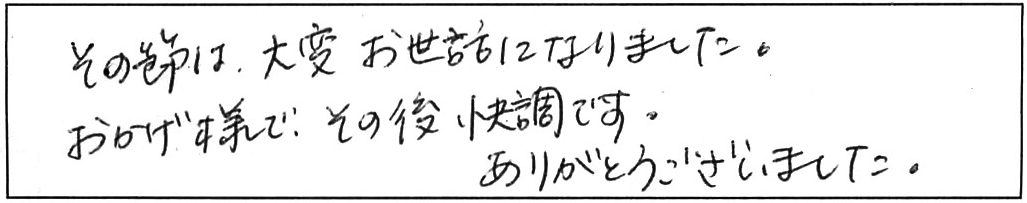 その節は、大変お世話になりました。
おかげ様で、その後快調です。
ありがとうございました。